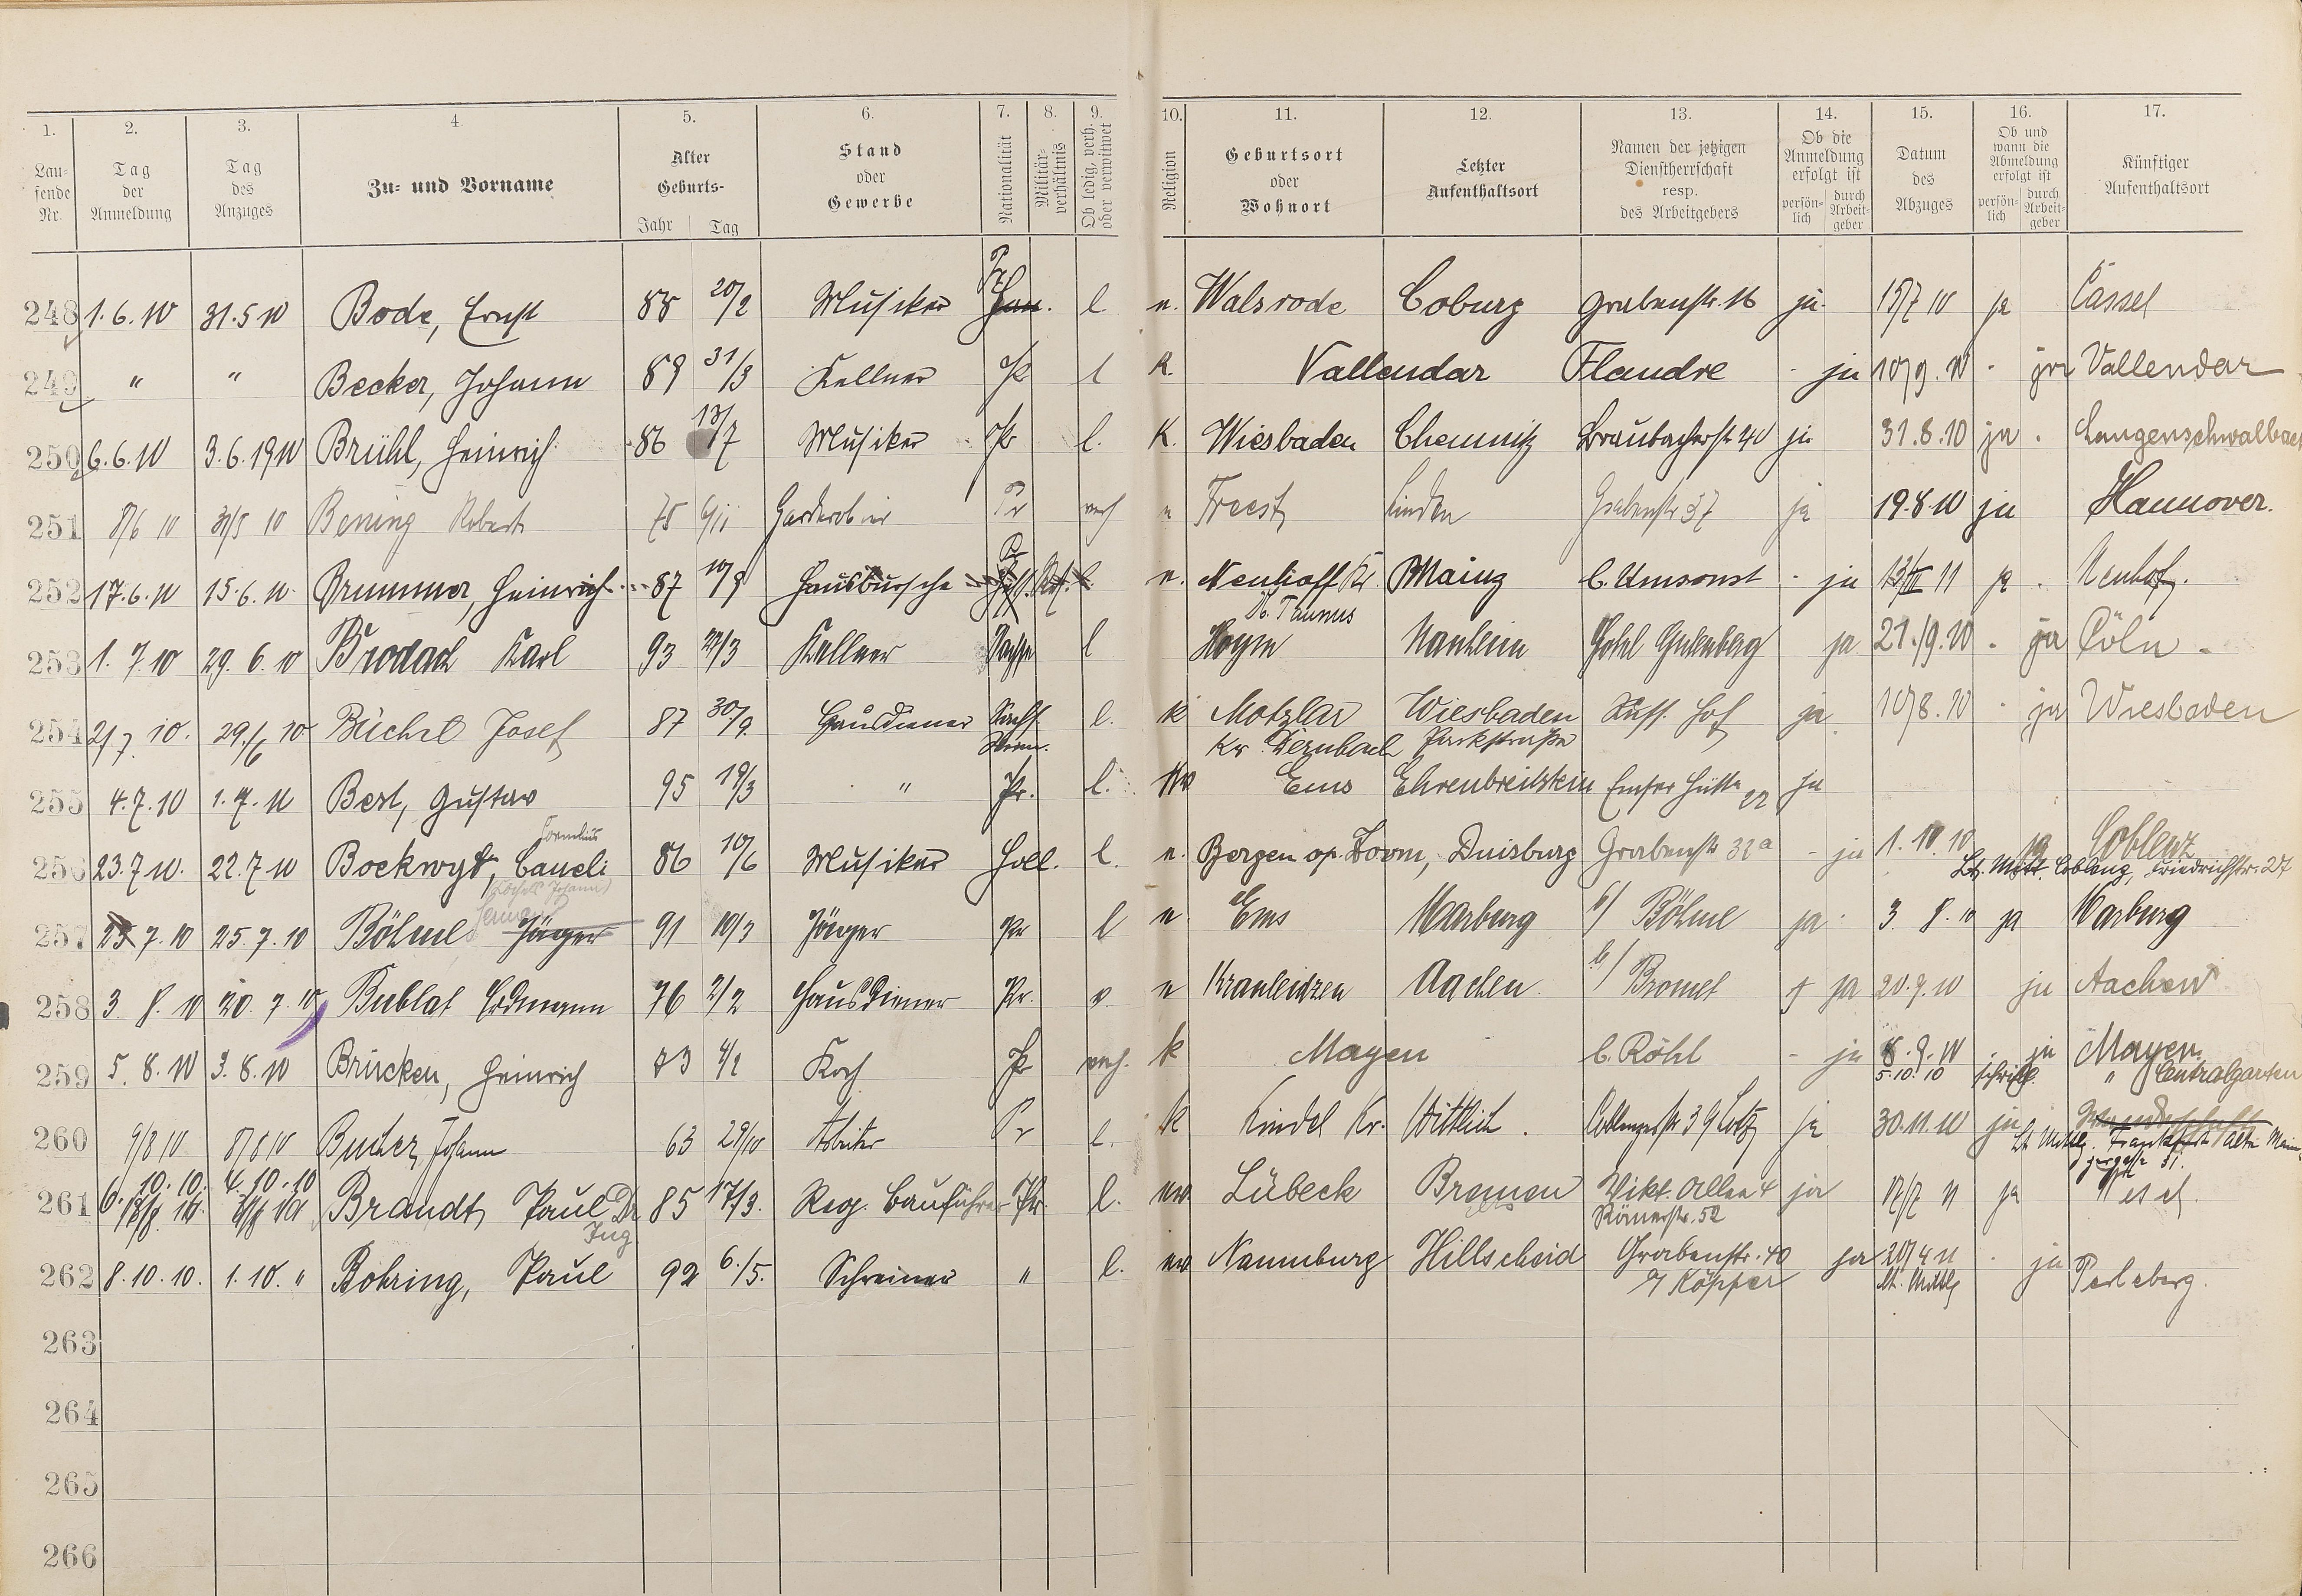 1. 2. 3. 4. 5. 6. 7. 8. 9. 10. 11. 12. 13. 14. 15. 16. 17.
Lau-
fende
Nr.
Tag
der
Anmeldung
Tag
des
Anzuges
Zu- und Vorname
Alter
Geburts-
Jahr Tag
Stand
oder
Gewerbe
Nationalität
Militär-
verhältnis
Ob ledig, verh.
oder verwitwet
Religion
Geburtsort
oder
Wohnort
Letzter
Aufenthaltsort
Namen der jetzigen
Dienstherrschaft
resp.
des Arbeitgebers
Ob die
Anmeldung
erfolgt ist
persön-
lich
durch
Arbeit-
geber
Datum
des
Abzuges
Ob und
wann die
Abmeldung
erfolgt ist
persön-
lich
durch
Arbeit-
geber
Künftiger
Aufenthaltsort
248 1.6.10 31.5 10 Bode, Ernst 88 20/2 Musiker Pr. l e. Walsrode Coburg Grabenstr. 16 ja 15/7 10 ja Cassel
249 " " Becker, Johann 89 31/3 Kellner Pr l K. Vallendar Flandre - ja 10/9.10 - ja Vallendar
250 6.6.10 3.6.1910 Brühl, Heinrich 86 13/7 Musiker Pr l. K. Wiesbaden Chemnitz Braubacherstr 40 ja 31.8.10 ja . Langenschwalbach
251 8/6 10 31/5 10 Bening Robert 75 6/11 Garderobier Pr verh e Freest Linden Grabenstr 37 ja 19.8.10 ja Hannover.
252 17.6.10 15.6.10. Brummer, Heinrich 87 10/9 Hausbursche Pr l. e. Neuhoff Kr Mainz b. Umsonst - ja 13/III 11 ja . Neuhof.
Taunus
253 1.7.10 29.6.10 Brodach Karl 93 22/3 Kellner l Hoym Nauheim Hotel Gutenberg ja 21./9.10 - ja Cöln -
254 2/7.10. 29./6 10 Büchel Josef 87 30/9. Hausdiener Sachs. l. k Motzlar Wiesbaden Russ. Hof ja 10/8.10 - ja Wiesbaden
Weim. Kr Dernbach Parkstraße
255 4.7.10 1.7.10 Best, Gustav 95 19/3 " Pr. l. Ems Ehrenbreitstein Emser Hütte 22 ja
Cornelius
256 23.7 10. 22.7 10 Bockwyt, 86 10/6 Musiker Holl. l. e. Bergen op. Zoom, Duisburg Grabenstr 32a - ja 1.10.10 ja Coblenz
Lt. Mitt. Coblenz, Friedrichstr. 27
257 7.10 25.7.10 Böhme Jäger 91 10/3 Jäger Pr l e Ems Marburg b/ Böhme ja 3 8.10 ja Marburg
258 3 8.10 20.7.10 Bublat Erdmann 76 2/2 Hausdiener Pr. v. e Aachen b/ Bromet ja 20.9.10 ja Aachen
259 5.8.10 3.8.10 Brücken, Heinrich 73 4/2 Koch Pr verh. k Mayen b. Röhl - ja 8.9.10 - ja Mayen
5.10.10 schriftl. " Centralgarten
260 9/8 10 8/8 10 Bucher, Johann 63 29/10 Arbeiter Pr l. k Kindel Kr. Wittlich. Coblenzerstr 39 Lotz ja 30.11.10 ja
Lt Mittlg. Frankfurt Alte Main-
zergasse 31.
261 6.10.10. 4.10.10 Brandt, Paul Dr 85 17/3. Reg. Bauführer Pr. l. ev. Lübeck Bremen Vikt. Allee 4 ja 12/7 11 ja Wesel.
Ing Römerstr. 52
262 8.10.10. 1.10. " Bohring, Paul 92 6./5. Schreiner " l. ev Naumburg Hillscheid Grabenstr. 40 ja 20/4 11 - ja Perleberg.
b/ Köpper lt. Mittlg
263
264
265
266